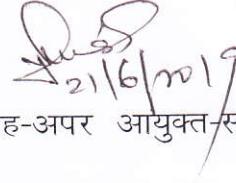 21/6/2019
ह-अपर आयुक्त-स